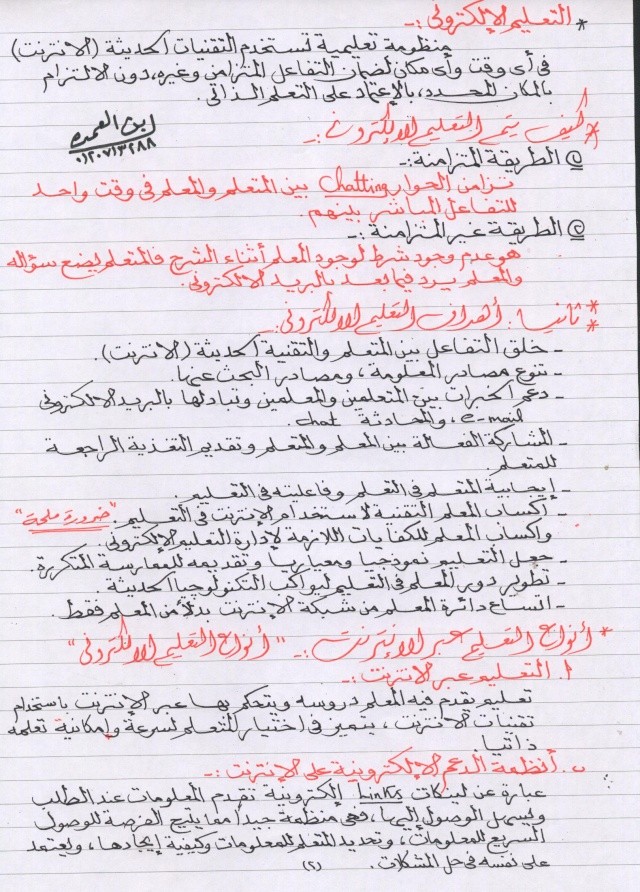 * التعليم الإلكتروني :-
منظومة تعليمية تستخدم التقنيات الحديثة (الانترنت)
في أى وقت وأى مكان لضمان التفاعل المتزامن وغيره، دون الالتزام
بالمكان المحدد، بالإعتماد على التعلم الذاتى.
ابن العمده
٠١٢٠٧١٣٢٨٨
* كيف يتم التعليم الالكترونى :-
١) الطريقة المتزامنة :-
تزامن الحوار chatting بين المتعلم والمعلم فى وقت واحد
للتفاعل المباشر بينهم.
٢) الطريقة غير المتزامنة :-
هو عدم وجود شرط لوجود المعلم أثناء الشرح فالمتعلم يضع سؤاله
والمعلم يرد فيما بعد بالبريد الالكترونى.
** ثانيا : أهداف التعليم الالكترونى :-
- خلق التفاعل بين المتعلم والتقنية الحديثة (الانترنت).
- تنوع مصادر المعلومة، ومصادر البحث عنها.
- دعم الخبرات بين المتعلمين والمعلمين وتبادلها بالبريد الالكترونى
e-mail، والمحادثة chat.
- المشاركة الفعالة بين المعلم والمتعلم وتقديم التغذية الراجعة
للمتعلم.
- إيجابية المتعلم فى التعلم وفاعليته فى التعليم.
- اكساب المعلم التقنية لاستخدام الإنترنت فى التعليم. "ضرورة ملحة"
واكساب المعلم للكفايات اللازمة لإدارة التعليم الإلكترونى
- جعل التعليم نموذجيا ومعياريا وتقديمه للممارسة المتكررة.
- تطوير دور المعلم فى التعليم ليواكب التكنولوجيا الحديثة
- اتساع دائرة المعلم من شبكة الإنترنت بدلا من المعلم فقط.
* أنواع التعليم عبر الانترنت :- "أنواع التعليم الالكترونى"
١. التعليم عبر الانترنت :-
تعليم تقدم فيه المعلم دروسه ويتحكم بها عبر الإنترنت باستخدام
تقنيات الانترنت، يتميز فى اختيار المتعلم لسرعة وإمكانية تعلمه
ذاتيا.
ب. أنظمة الدعم الإلكترونية على الإنترنت :-
عبارة عن لينكات Links إلكترونية تقدم المعلومات عند الطلب
ويسهل الوصول إليها، فهى منظمة جيداً مما يتيح الفرصة للوصول
السريع للمعلومات، وتحديد المتعلم للمعلومات وكيفية إيجادها، ويعتمد
على نفسه فى حل المشكلات.
(٢)